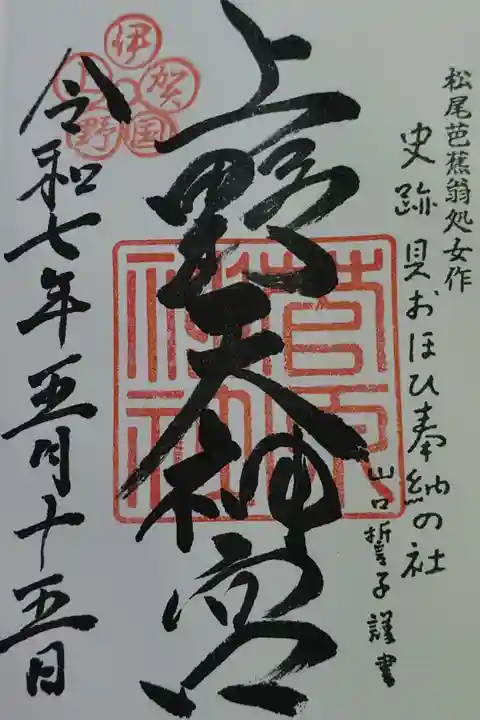 松尾芭蕉翁処女作
史跡 貝おほひ奉納の社
山口誓子謹書
上野天神宮
菅原神社
伊賀国上野
令和七年五月十五日